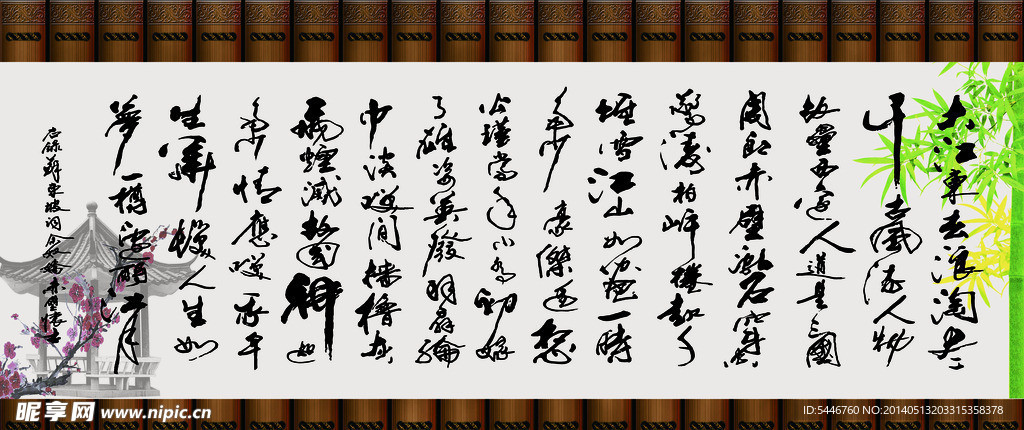 大江东去浪淘尽
千古风流人物
故垒西边人道是三國
周郎赤壁亂石穿
驚濤拍岸捲起千
堆雪江山如畫一時
多少豪傑遥想
公瑾當年小喬初嫁
了雄姿英發羽扇綸
巾談笑間檣櫓灰
飛煙滅故國神遊
多情應笑我早
生華髮人生如
夢一樽還酹江月
昵享网 www.nipic.cn
ID:5446760 NO:20140513203315358378